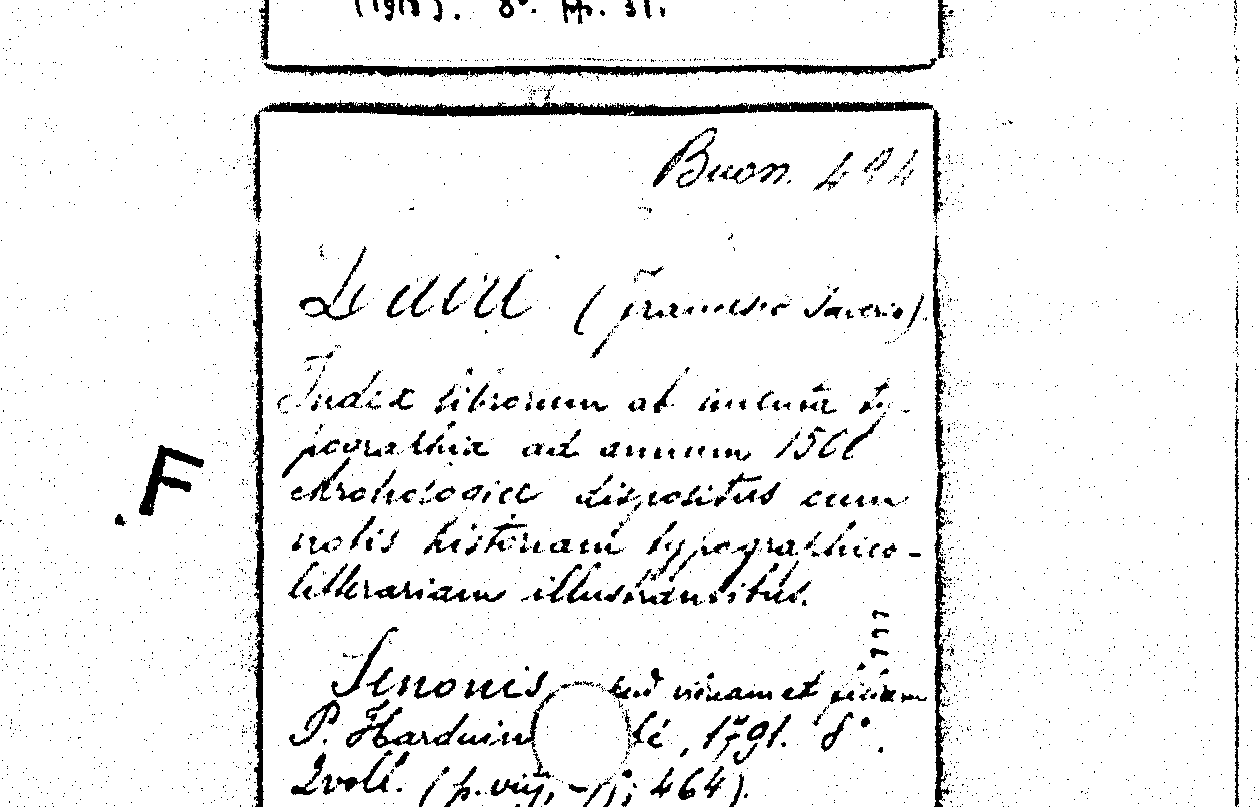 (1918). 8°. pp. 31.
Buon. 494
Laire (Francesco Saverio).
Index librorum ab inventa ty-
pographia ad annum 1500
chronologice dispositus cum
notis historiam typographico-
litterariam illustrantibus.
Senonis, apud viduam et filium
P. Harduini 1791. 8°.
2 voll. (p. viij,
464).
F